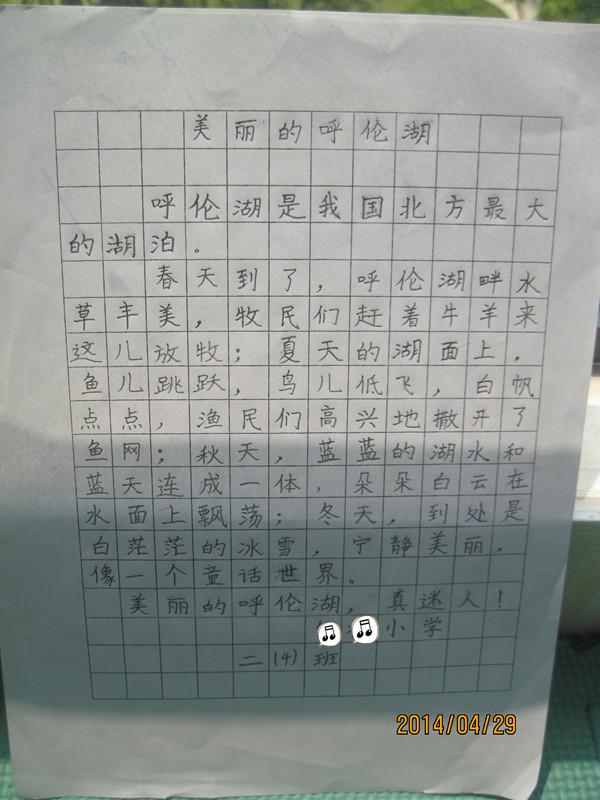 美丽的呼伦湖
呼伦湖是我国北方最大
的湖泊。
春天到了，呼伦湖畔水
草丰美，牧民们赶着牛羊来
这儿放牧；夏天的湖面上，
鱼儿跳跃，鸟儿低飞，白帆
点点，渔民们高兴地撒开了
鱼网；秋天，蓝蓝的湖水和
蓝天连成一体，朵朵白云在
水面上飘荡；冬天，到处是
白茫茫的冰雪，宁静美丽，
像一个童话世界。
美丽的呼伦湖，真迷人！
小学
二(4)班
2014/04/29